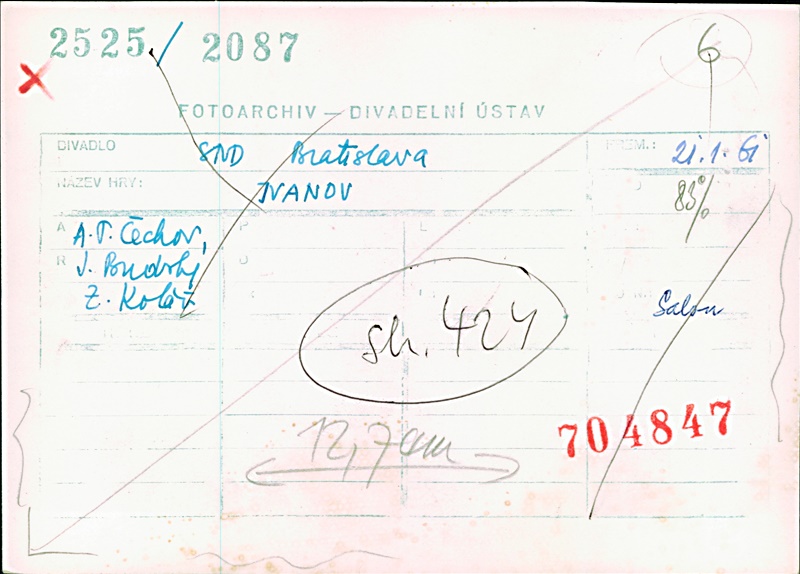 2525/2087
6
FOTOARCHIV — DIVADELNÍ ÚSTAV
DIVADLO SND Bratislava PREM.: 21.1.61
NÁZEV HRY: IVANOV
83%
A A.P. Čechov,
R J. Budský
Z. Kolář
Salon
str. 424
704847
12,7cm